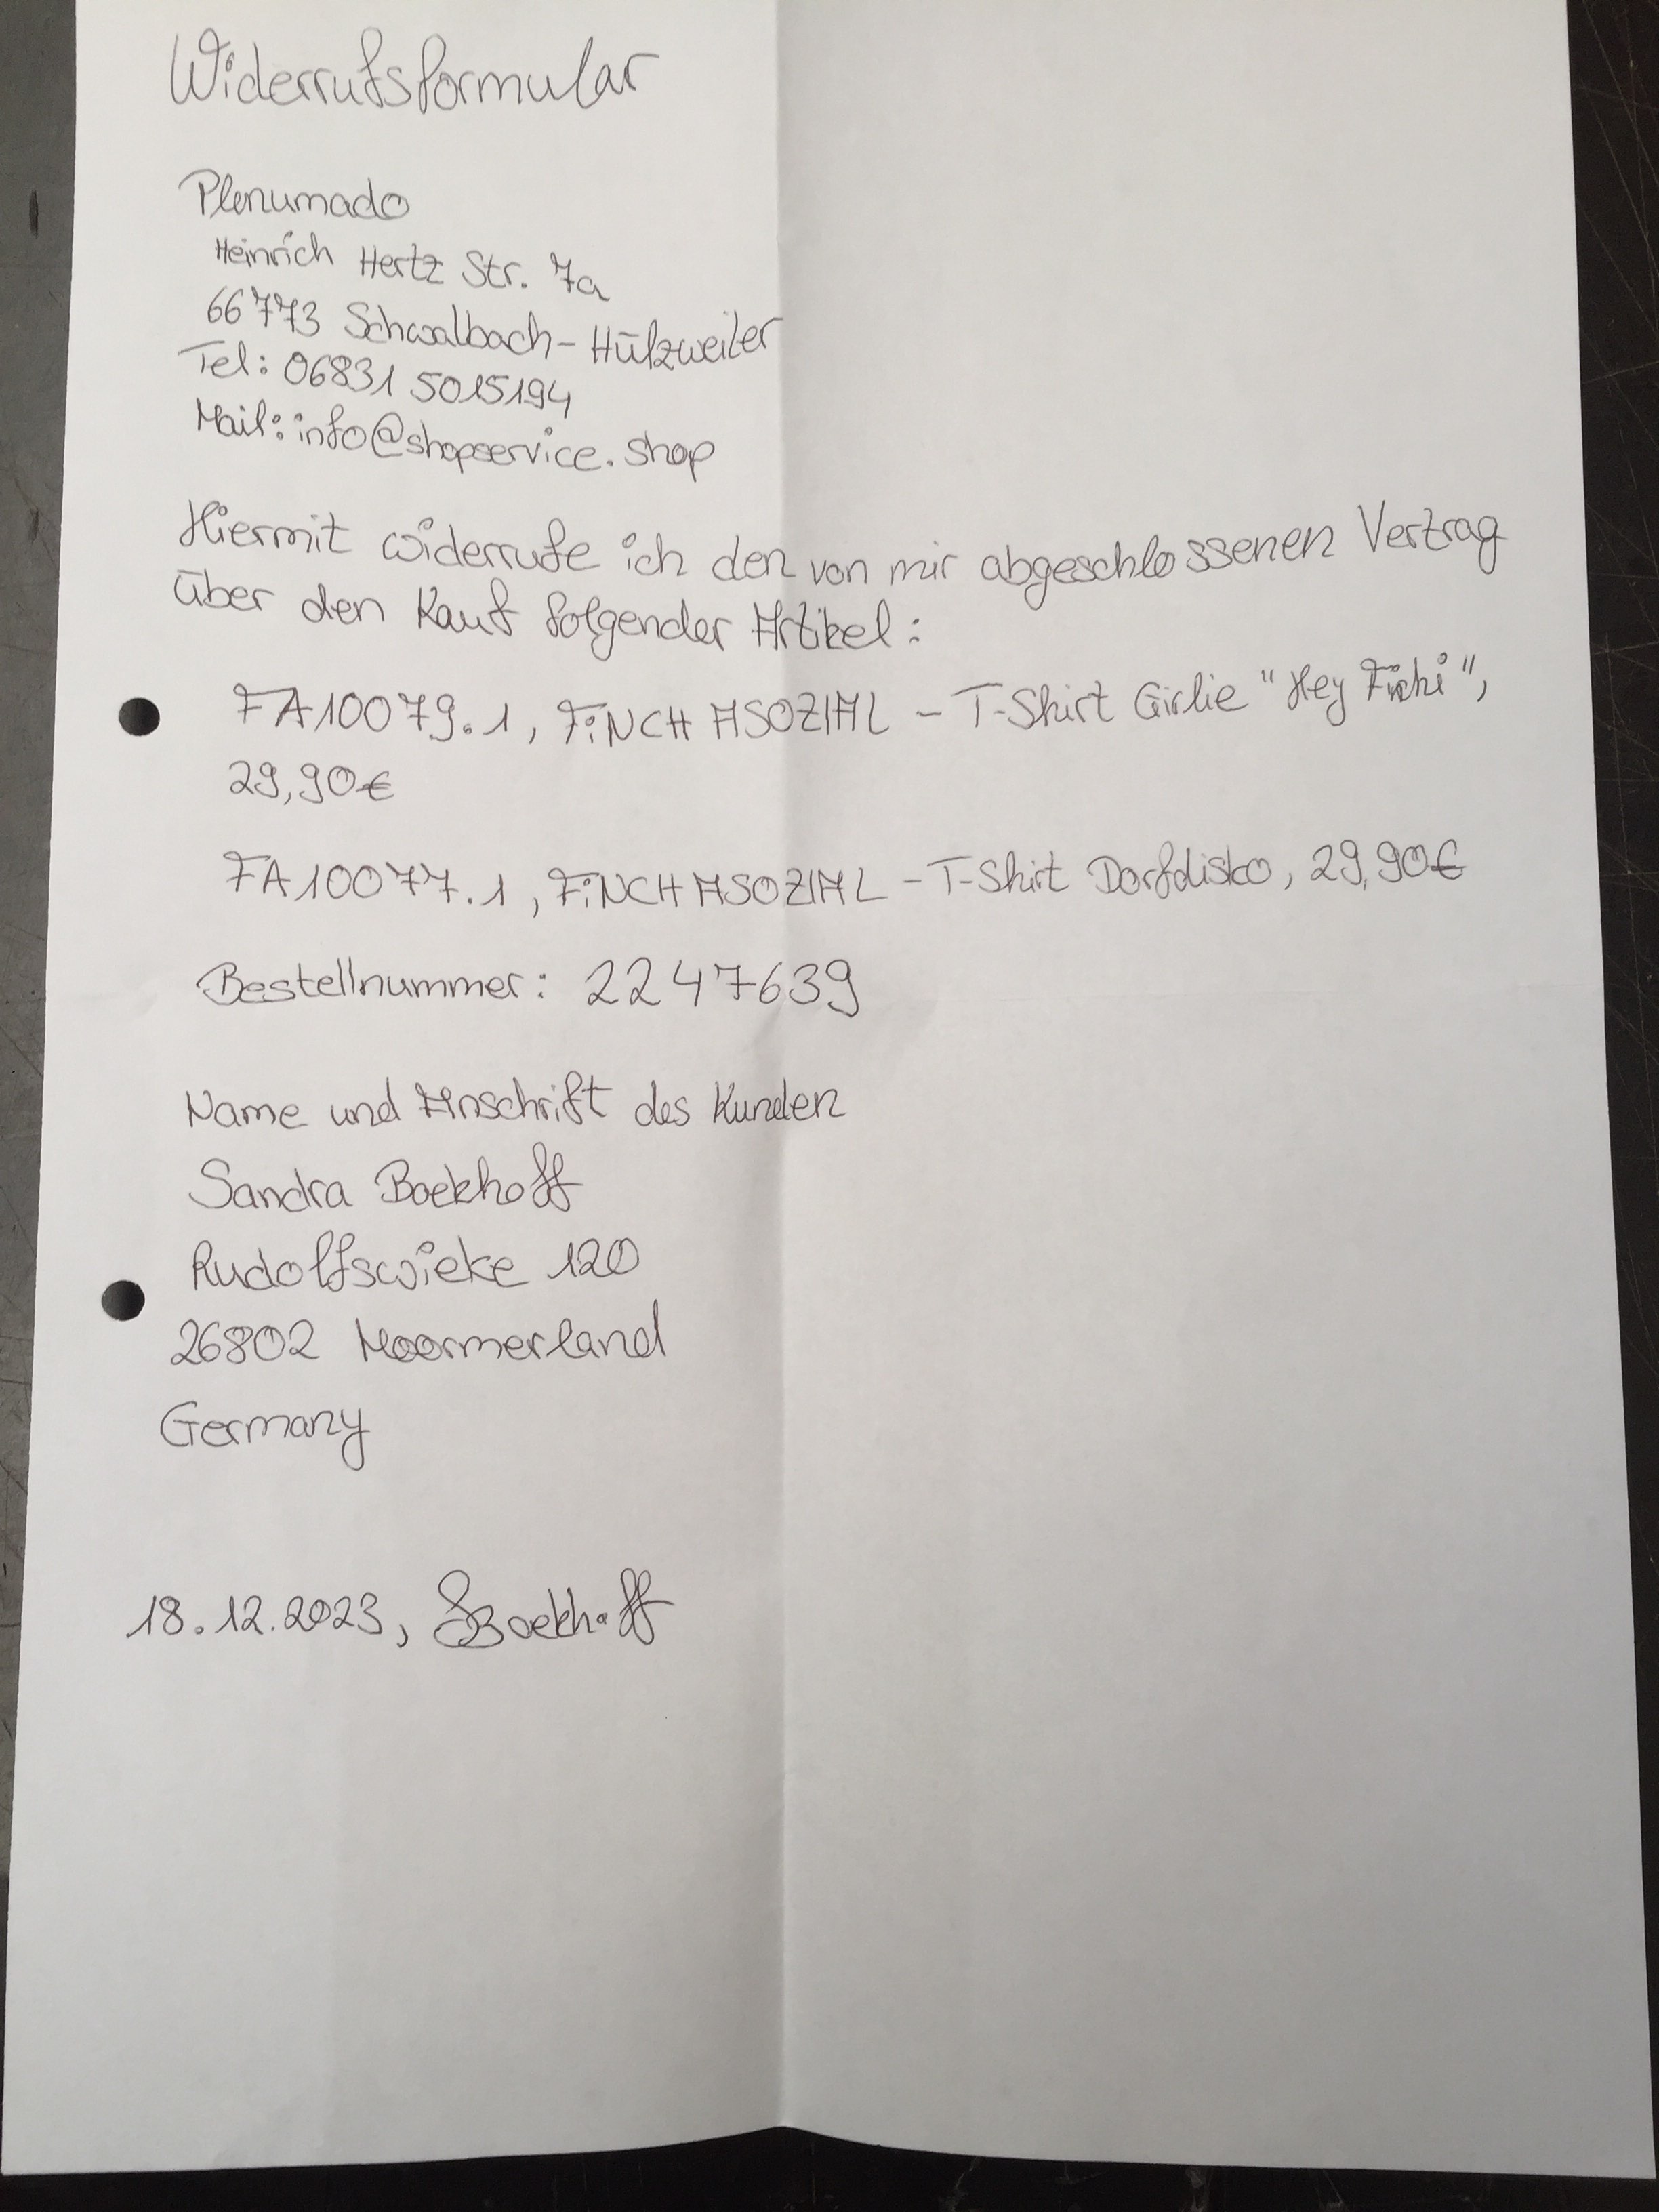 Widerrufsformular
Plenumado
Heinrich Hertz Str. 7a
66773 Schwalbach-Hülzweiler
Tel: 06831 5015194
Mail: info@shopservice.shop
Hiermit widerrufe ich den von mir abgeschlossenen Vertrag
über den Kauf folgender Artikel:
FA10079.1, FiNCH ASOZIAL - T-Shirt Girlie "Hey
29,90€
FA10077.1, FiNCH ASOZIAL - T-Shirt Dorfdisko, 29,90€
Bestellnummer: 2247639
Name und Anschrift des Kunden
Sandra Boekhoff
Rudolfswieke 120
26802 Moormerland
Germany
18.12.2023, SBoekhoff